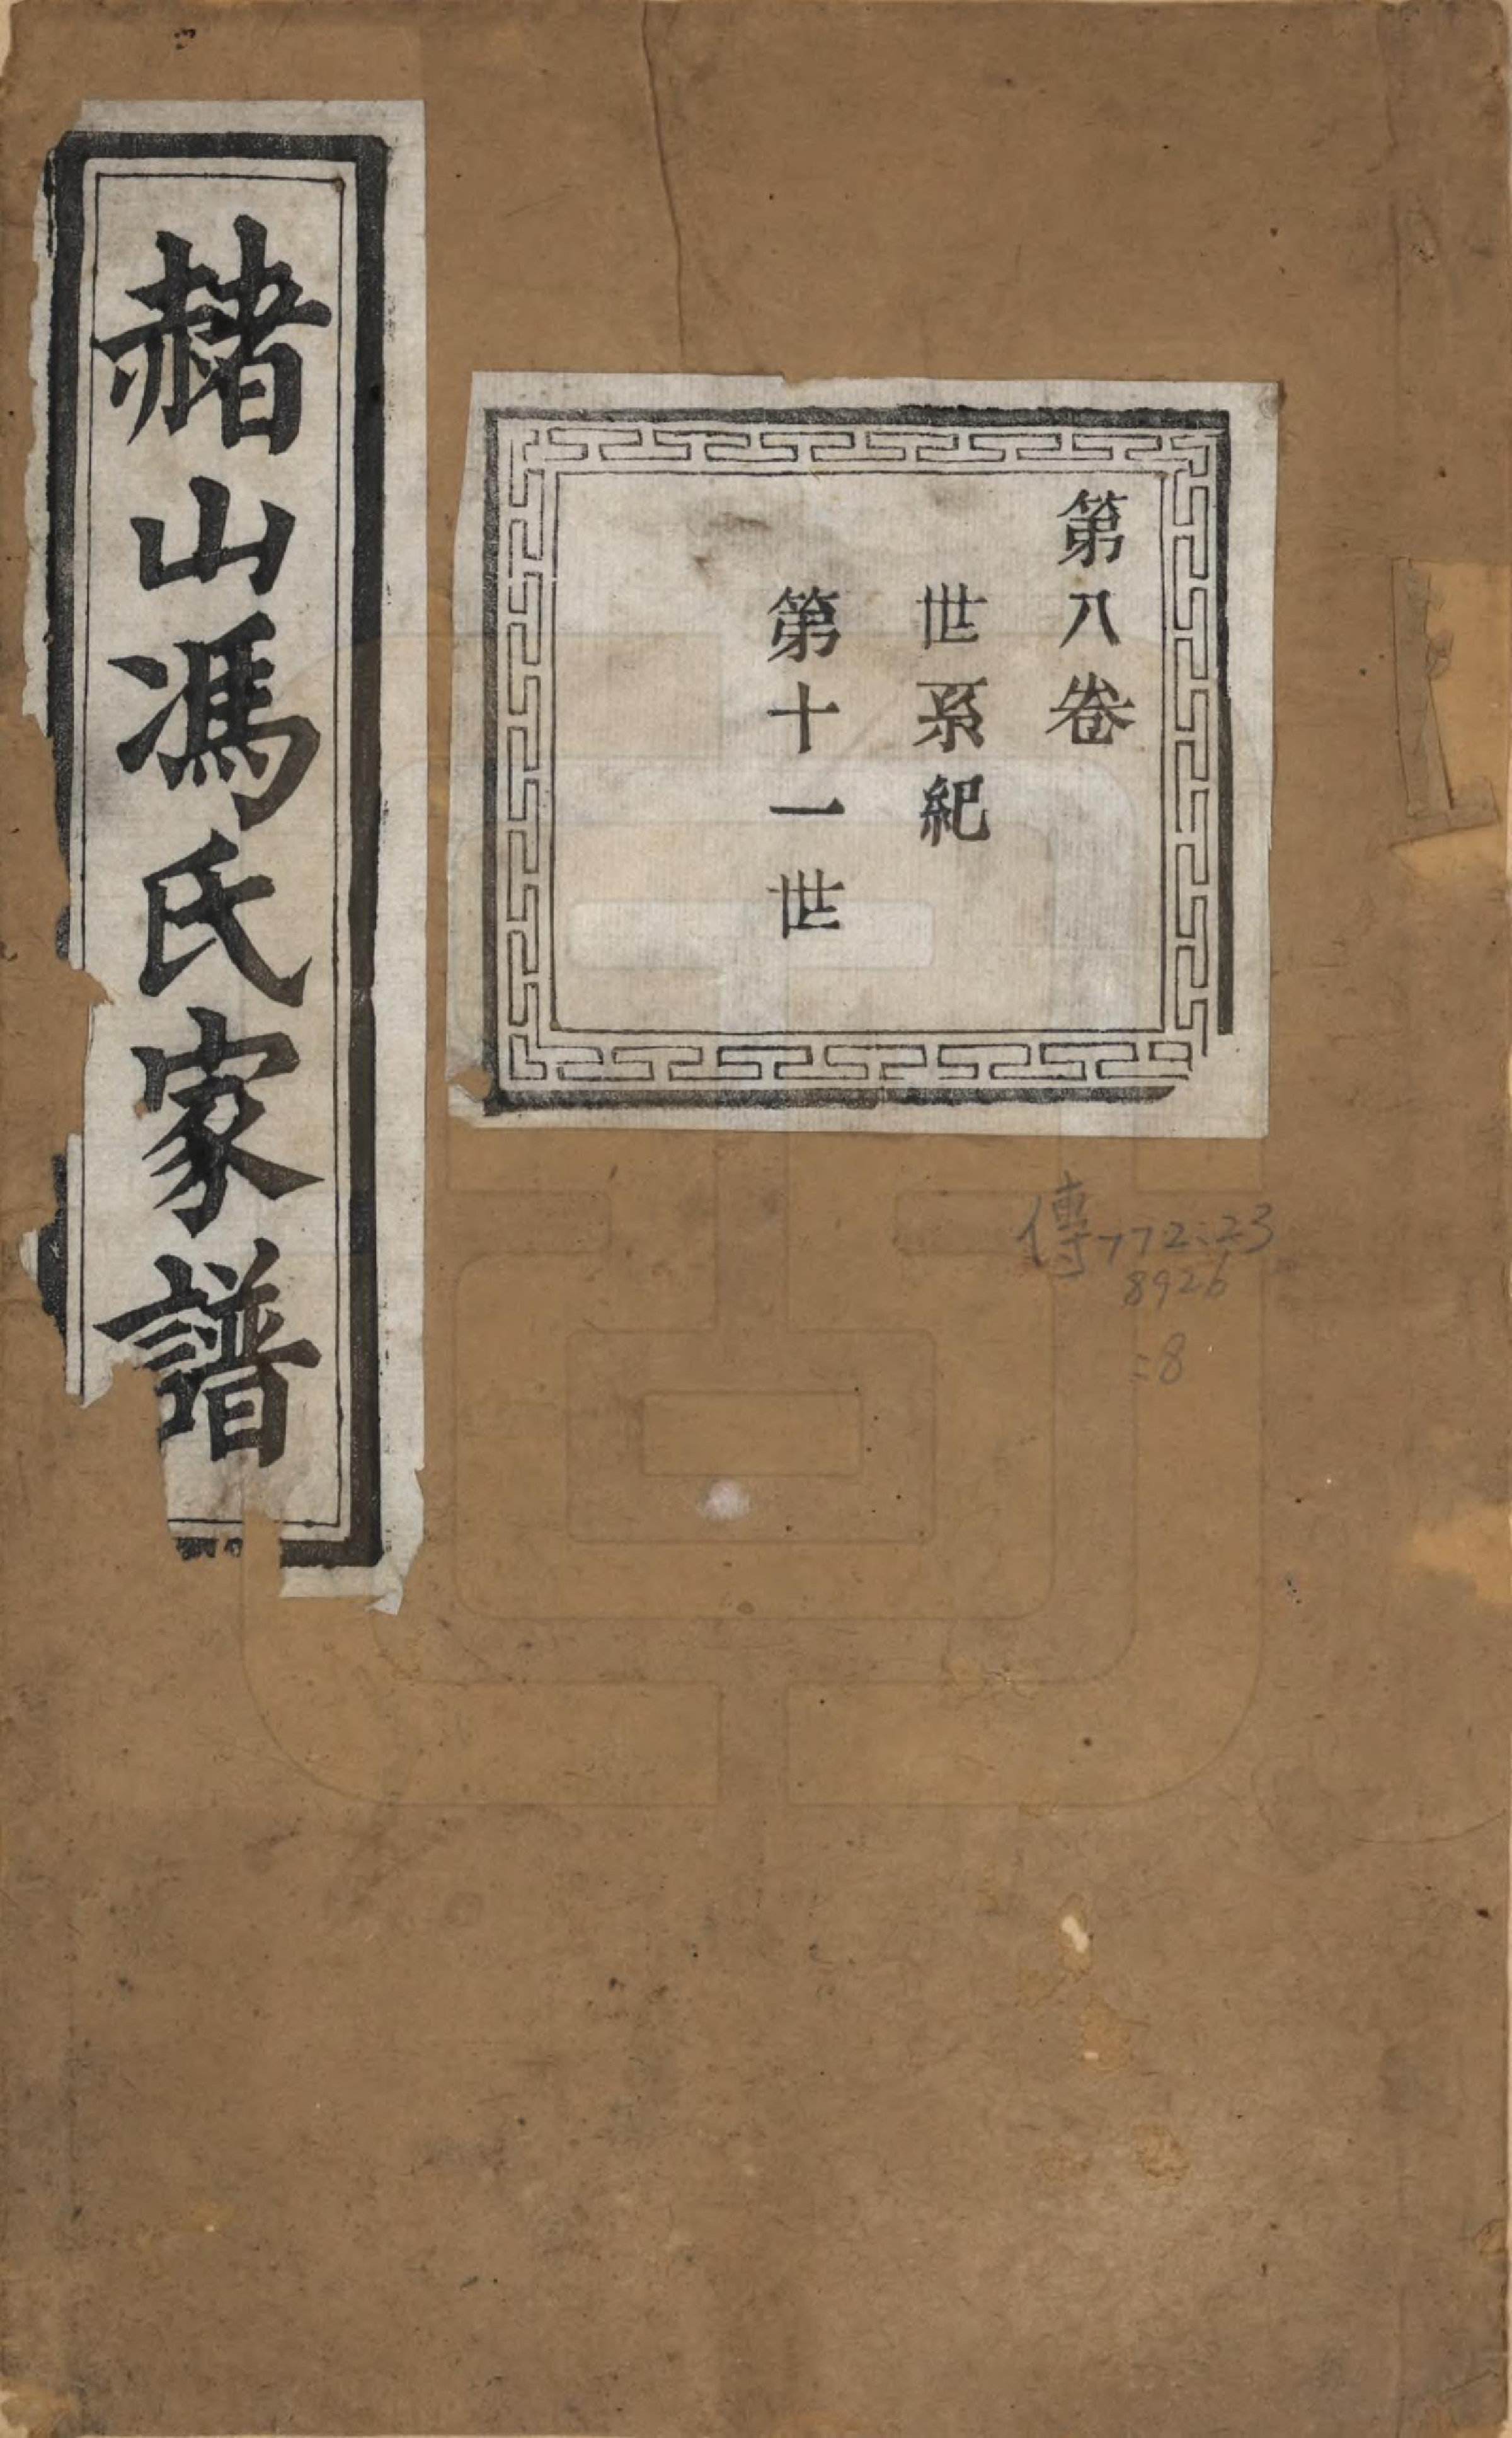 第八卷
世系紀
第十一世
赭山馮氏家譜
傳772.23
8926
:8